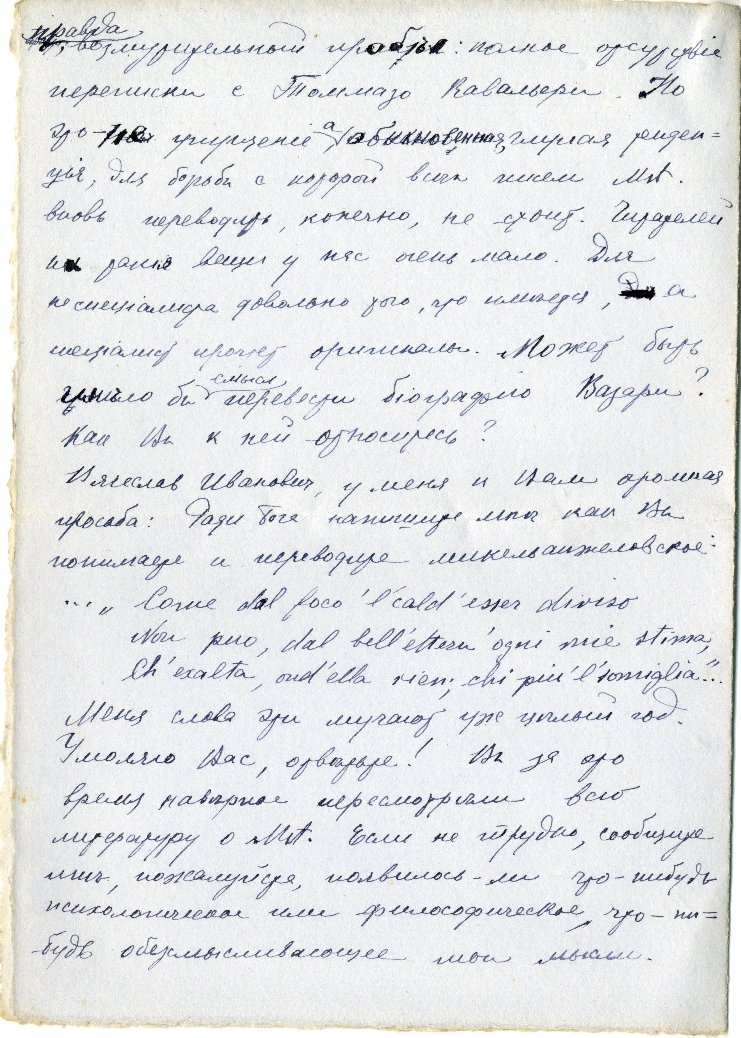 правда
, возмутительный пробѣл: полное отсутствіе
переписки с Томмазо Кавальери. Но
это не упущеніе, а обыкновенная, глупая тенден=
ція, для борьбы с которой всѣм пишем MA.
вновь переводить, конечно, не стоит. Читателей
на такія вещи у нас очень мало. Для
неспеціалиста довольно того, что имѣется, а
спеціалист прочтет оригиналы. Может быть
имѣло бы смысл перевести біографію Вазари?
Как Вы к ней относитесь?
Вячеслав Иванович, у меня к Вам огромная
просьба: Ради Бога напишите мнѣ как Вы
понимаете и переводите микельанжеловское:
... „Come dal foco 'l cald' esser diviso
Non può, dal bell' ettern' ogni mie stima,
Ch' exalta, ond' ella vien, chi più 'l somiglia“...
Меня слова эти мучают уж цѣлый год.
Умоляю Вас, отвѣтьте! Вы за это
время навѣрное пересмотрѣли всю
литературу о MA. Если не трудно, сообщите
мнѣ, пожалуйста, появилось-ли что-нибудь
психологическое или философическое, что-ни=
будь обезмысливающее мои мысли.